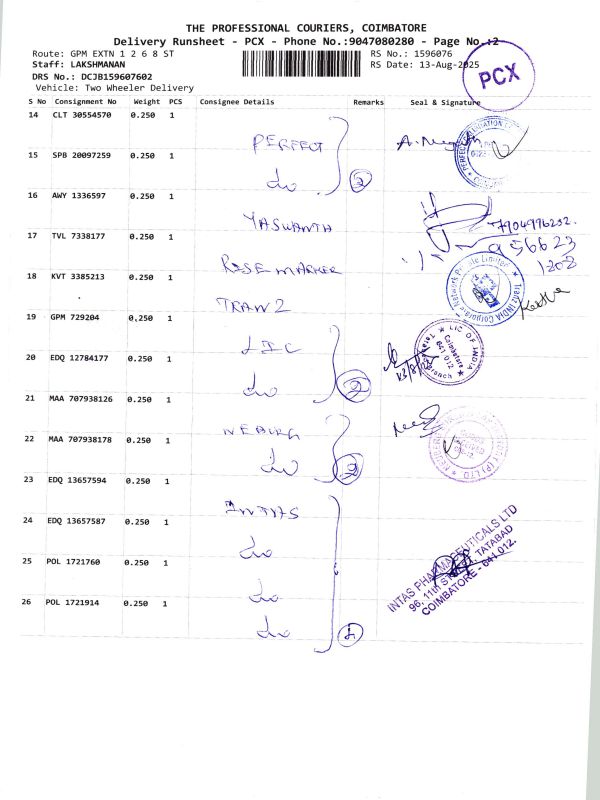 THE PROFESSIONAL COURIERS, COIMBATORE
Delivery Runsheet - PCX - Phone No.:9047080280 - Page No.:2
Route: GPM EXTN 1 2 6 8 ST RS No.: 1596076
Staff: LAKSHMANAN RS Date: 13-Aug-2025
DRS No.: DCJB159607602
Vehicle: Two Wheeler Delivery
PCX
S No Consignment No Weight PCS Consignee Details Remarks Seal & Signature
14 CLT 30554570 0.250 1 PERFECT
15 SPB 20097259 0.250 1 do 2
16 AWY 1336597 0.250 1 YASWANTA 7904996232.
17 TVL 7338177 0.250 1 ROSE MARKER 956623
1202
18 KVT 3385213 0.250 1 TRANZ
TranZ INDIA Corporate Network Private Limited
19 GPM 729204 0.250 1 LIC
20 EDQ 12784177 0.250 1 do 2
LIC OF INDIA
Coimbatore
641 012
21 MAA 707938126 0.250 1
22 MAA 707938178 0.250 1 do 2
23 EDQ 13657594 0.250 1 INTAS
24 EDQ 13657587 0.250 1 do
25 POL 1721760 0.250 1 do
26 POL 1721914 0.250 1 do 4
INTAS PHARMACEUTICALS LTD
96, 11th ST. TATABAD
COIMBATORE - 641 012.